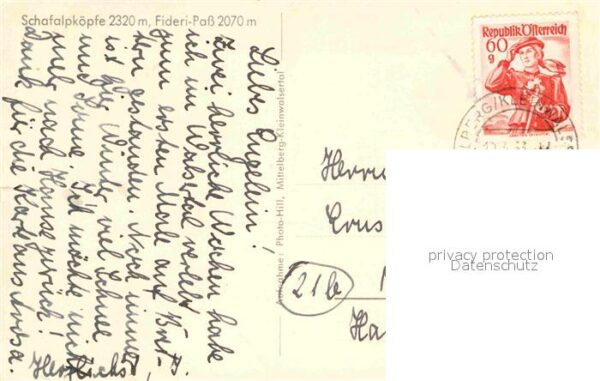 Schafalpköpfe 2320 m, Fideri-Paß 2070 m
Liebes Engelein!
Zwei herrliche Wochen habe
ich im Walsertal verlebt
zum ersten Male auf Bret-
tern gestanden. Noch immer
ist hier Winter, viel Schnee
und Sonne. Ich möchte nicht
mehr nach Hause zurück!
Dank für die Karte aus Arosa.
Herzlichst,
Aufnahme: Photo-Hill, Mittelberg-Kleinwalsertal
Republik Österreich
60
g
Herrn
21b
Ha
privacy protection
Datenschutz